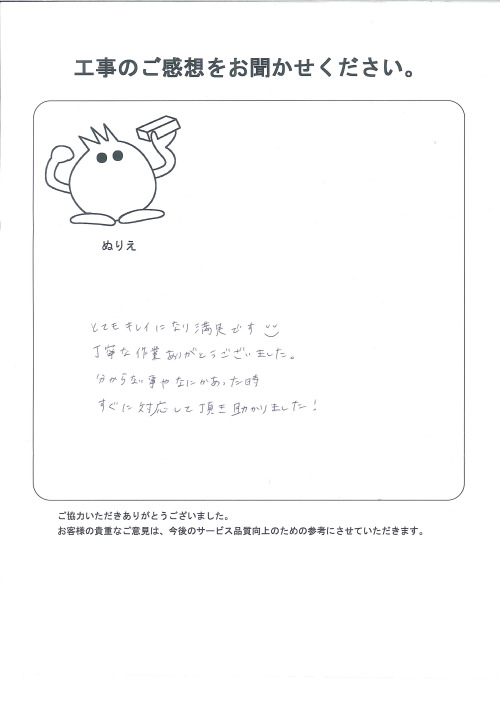 工事のご感想をお聞かせください。
ぬりえ
とてもキレイになり満足です
丁寧な作業ありがとうございました。
分からない事やなにかあった時
すぐに対応して頂き助かりました!
ご協力いただきありがとうございました。
お客様の貴重なご意見は、今後のサービス品質向上のための参考にさせていただきます。